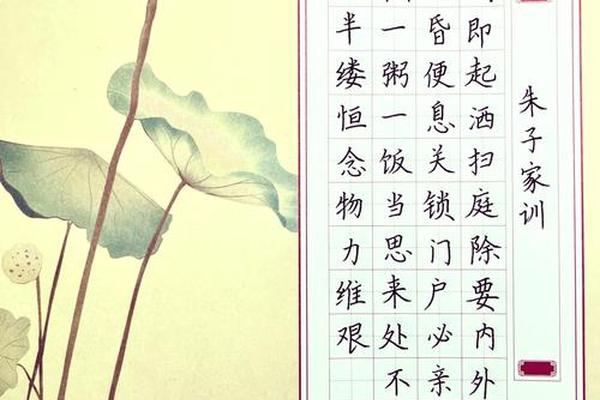 朱子家训
即起洒扫庭除要内外
昏便息关锁门户必亲
一粥一饭当思来处不
半缕恒念物力维艰